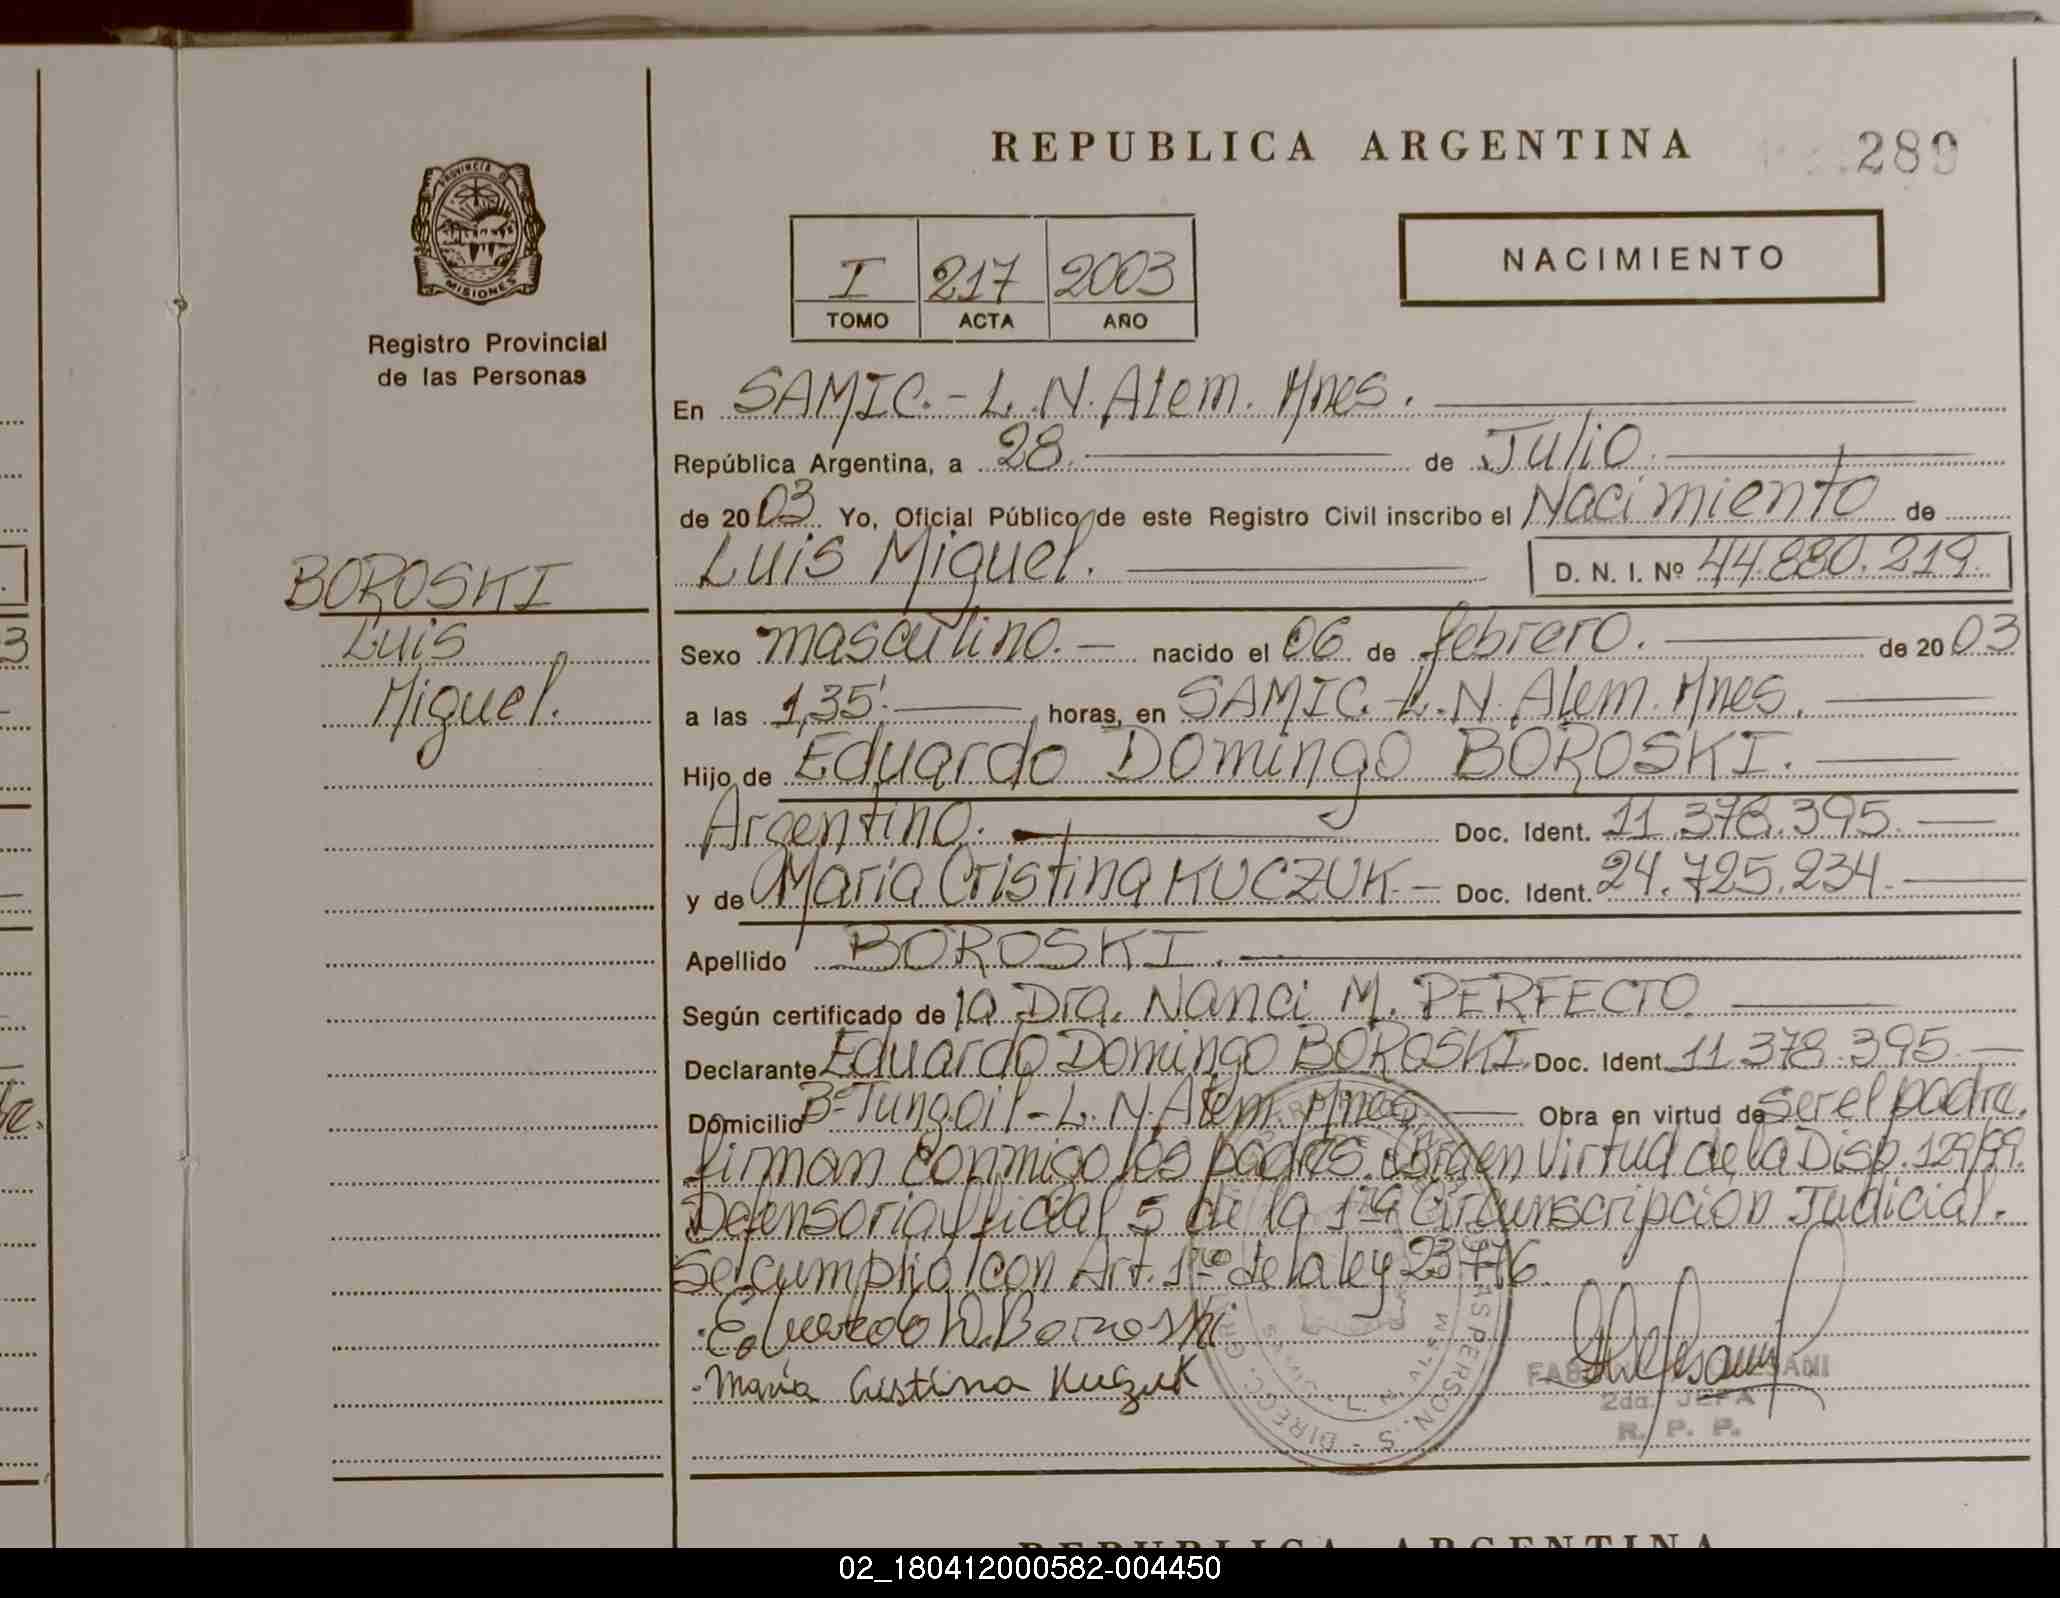 REPUBLICA ARGENTINA
289
PROVINCIA DE
MISIONES
Registro Provincial
de las Personas
I 217 2003
TOMO ACTA AÑO
NACIMIENTO
En SAMIC.- L. N. Alem. Mnes.
República Argentina, a 28. de Julio.
de 2003 Yo, Oficial Público de este Registro Civil inscribo el Nacimiento de
Luis Miguel. D. N. I. Nº 44.880.219.
BOROSKI
Luis
Miguel.
Sexo masculino. nacido el 06 de febrero. de 2003
a las 1,35'. horas, en SAMIC.- L. N. Alem. Mnes.
Hijo de Eduardo Domingo BOROSKI.
Argentino. Doc. Ident. 11.378.395.
y de María Cristina KUCZUK.- Doc. Ident. 24.725.234.
Apellido BOROSKI.
Según certificado de la Dra. Nanci M. PERFECTO
Declarante Eduardo Domingo BOROSKI. Doc. Ident. 11.378.395.
Domicilio Bº Tungoil - L. N. Alem. Mnes. Obra en virtud de ser el padre.
firman conmigo los padres. en Virtud de la Disp. 129/99.
Defensoria Oficial 5 de la 1ra Circunscripción Judicial.
Se cumplió con Art. 1ro de la ley 23776
Eduardo D. Boroski
María Cristina Kuczuk
2da. JEFA
R. P. P.
REPUBLICA ARGENTINA
02_180412000582-004450